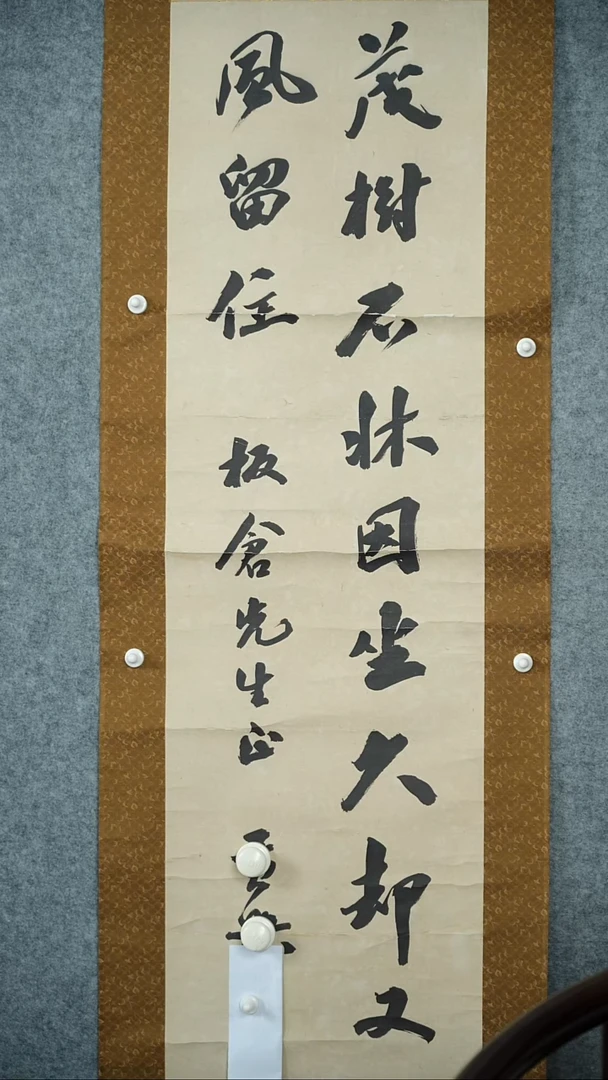 茂樹石牀因坐久却又
風留住 板倉先生正